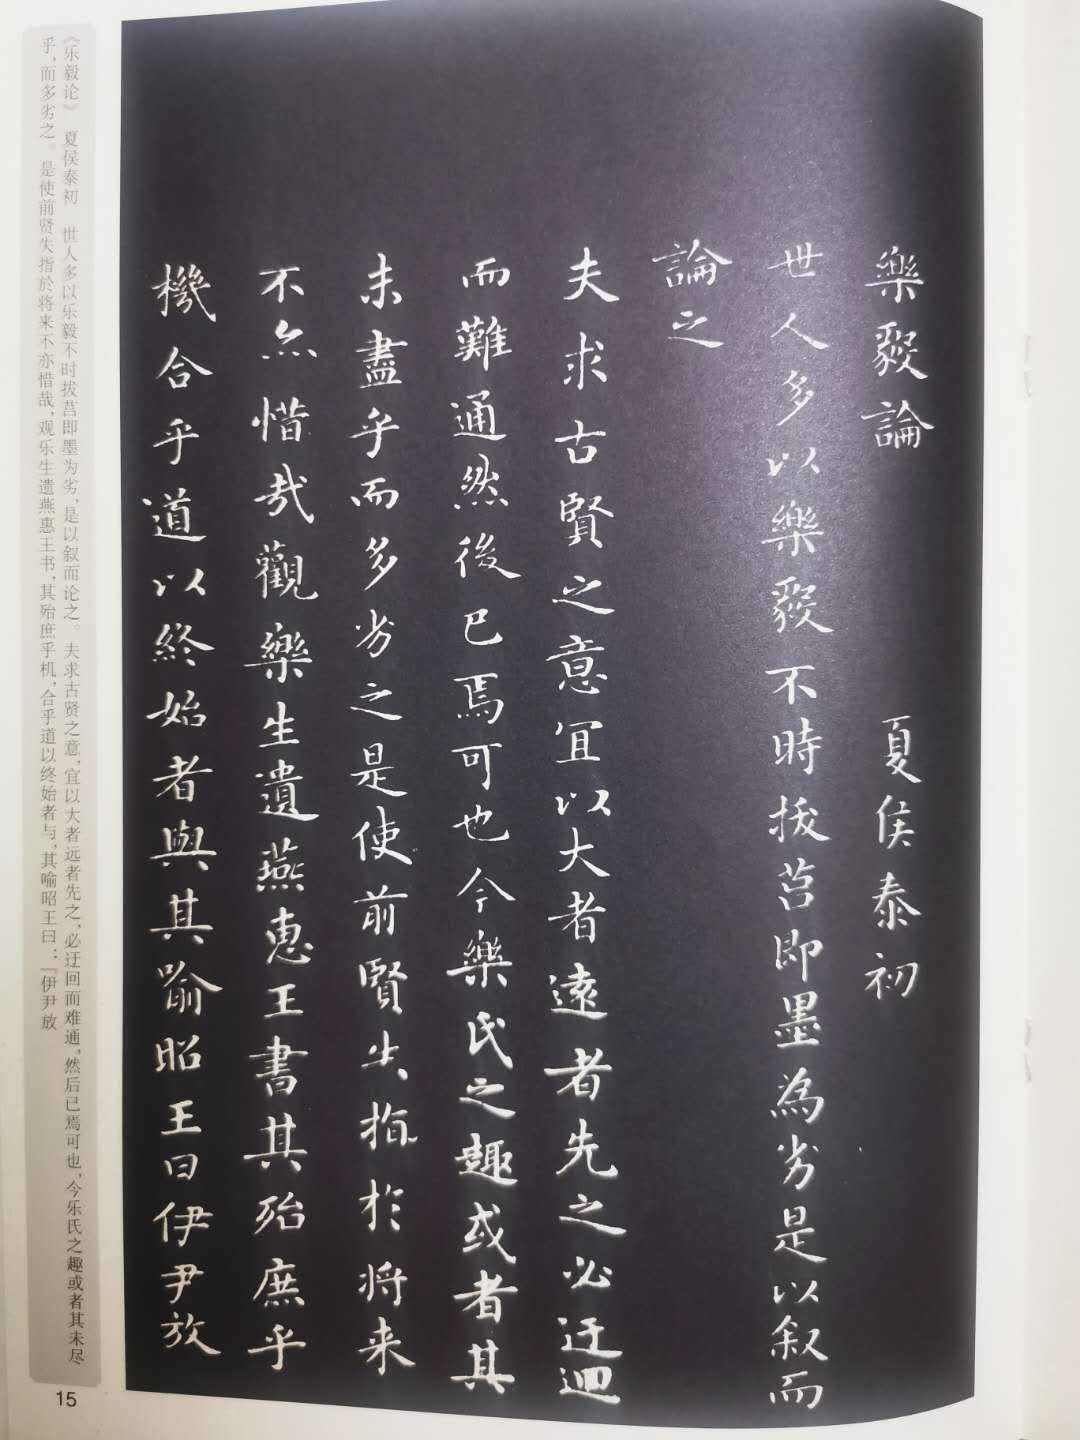 樂毅論　夏侯泰初
世人多以樂毅不時拔莒即墨為劣是以叙而
論之
夫求古賢之意宜以大者遠者先之必迂迴
而難通然後已焉可也今樂氏之趣或者其
未盡乎而多劣之是使前賢失指於将来
不亦惜哉觀樂生遺燕惠王書其殆庶乎
機合乎道以終始者與其喻昭王曰伊尹放
《乐毅论》　夏侯泰初　世人多以乐毅不时拔莒即墨为劣，是以叙而论之。夫求古贤之意，宜以大者远者先之，必迂回而难通，然后已焉可也，今乐氏之趣或者其未尽
乎，而多劣之。是使前贤失指於将来不亦惜哉，观乐生遗燕惠王书，其殆庶乎机，合乎道以终始者与，其喻昭王曰：『伊尹放
15